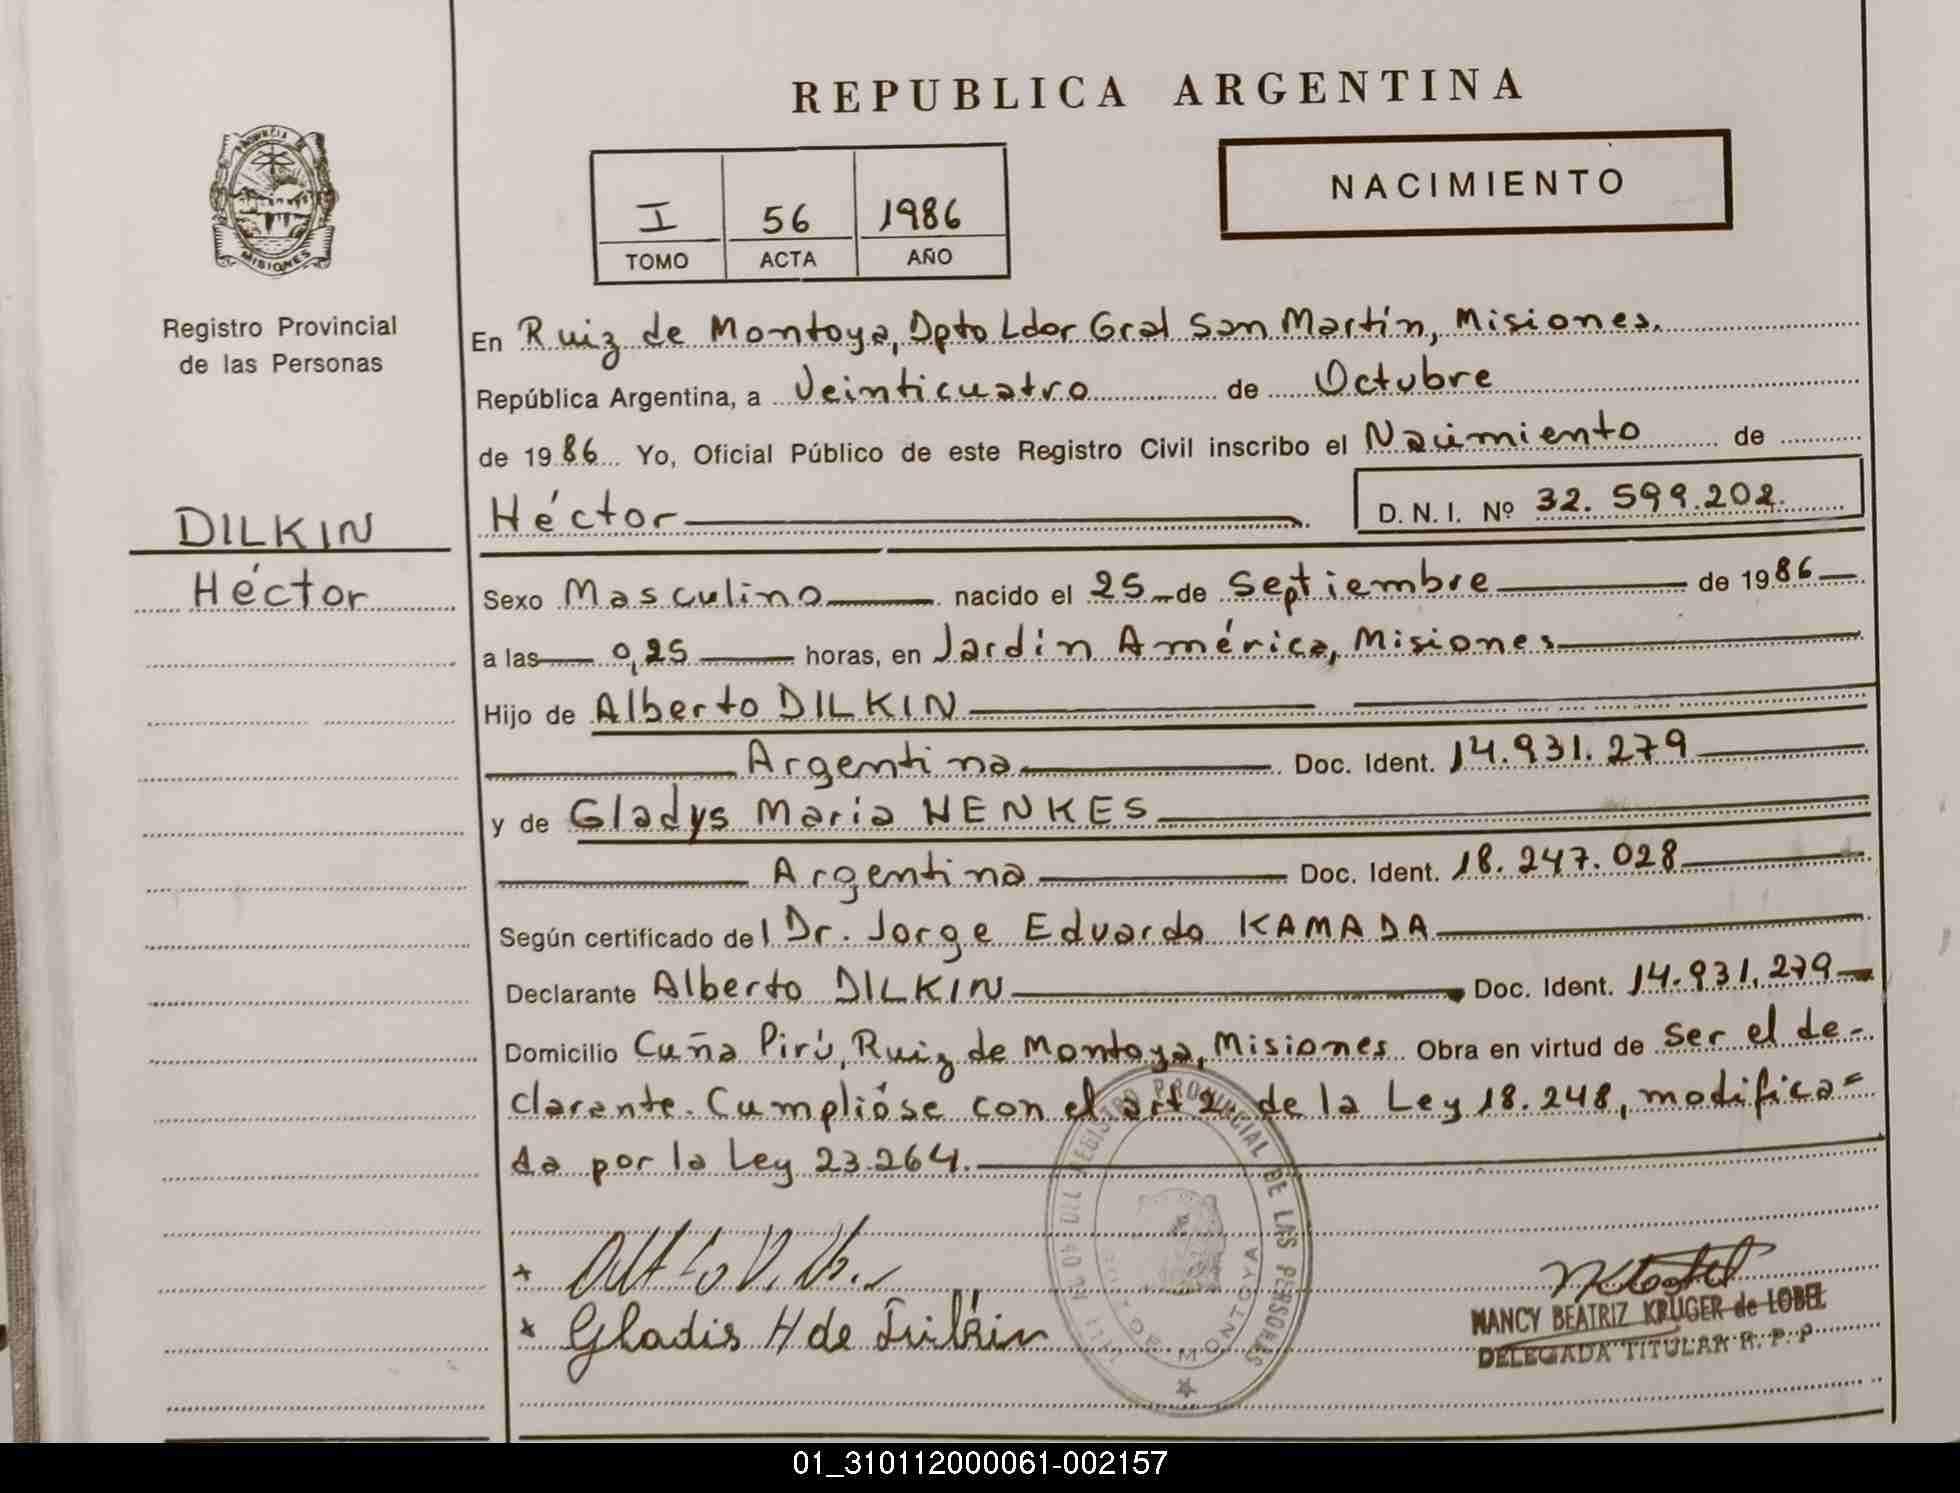 REPUBLICA ARGENTINA
PROVINCIA
MISIONES
Registro Provincial
de las Personas
I 56 1986
TOMO ACTA AÑO
NACIMIENTO
En Ruiz de Montoya, Dpto Ldor Gral San Martín, Misiones.
República Argentina, a Veinticuatro de Octubre
de 1986 Yo, Oficial Público de este Registro Civil inscribo el Nacimiento de
DILKIN
Héctor
Héctor D. N. I. Nº 32.599.202.
Sexo Masculino nacido el 25 de Septiembre de 1986
a las 0,25 horas, en Jardín América, Misiones
Hijo de Alberto DILKIN
Argentina Doc. Ident. 14.931.279
y de Gladys Maria HENKES
Argentina Doc. Ident. 18.247.028
Según certificado del Dr. Jorge Eduardo KAMADA
Declarante Alberto DILKIN Doc. Ident. 14.931.279
Domicilio Cuña Pirú, Ruiz de Montoya, Misiones Obra en virtud de ser el de-
clarante. Cumplióse con el art 2. de la Ley 18.248, modifica=
da por la Ley 23.264.
REGISTRO PROVINCIAL DE LAS PERSONAS
MONTOYA
Gladis H de Dilkin
NANCY BEATRIZ KRUGER de LOBEL
DELEGADA TITULAR R. P. P
01_310112000061-002157